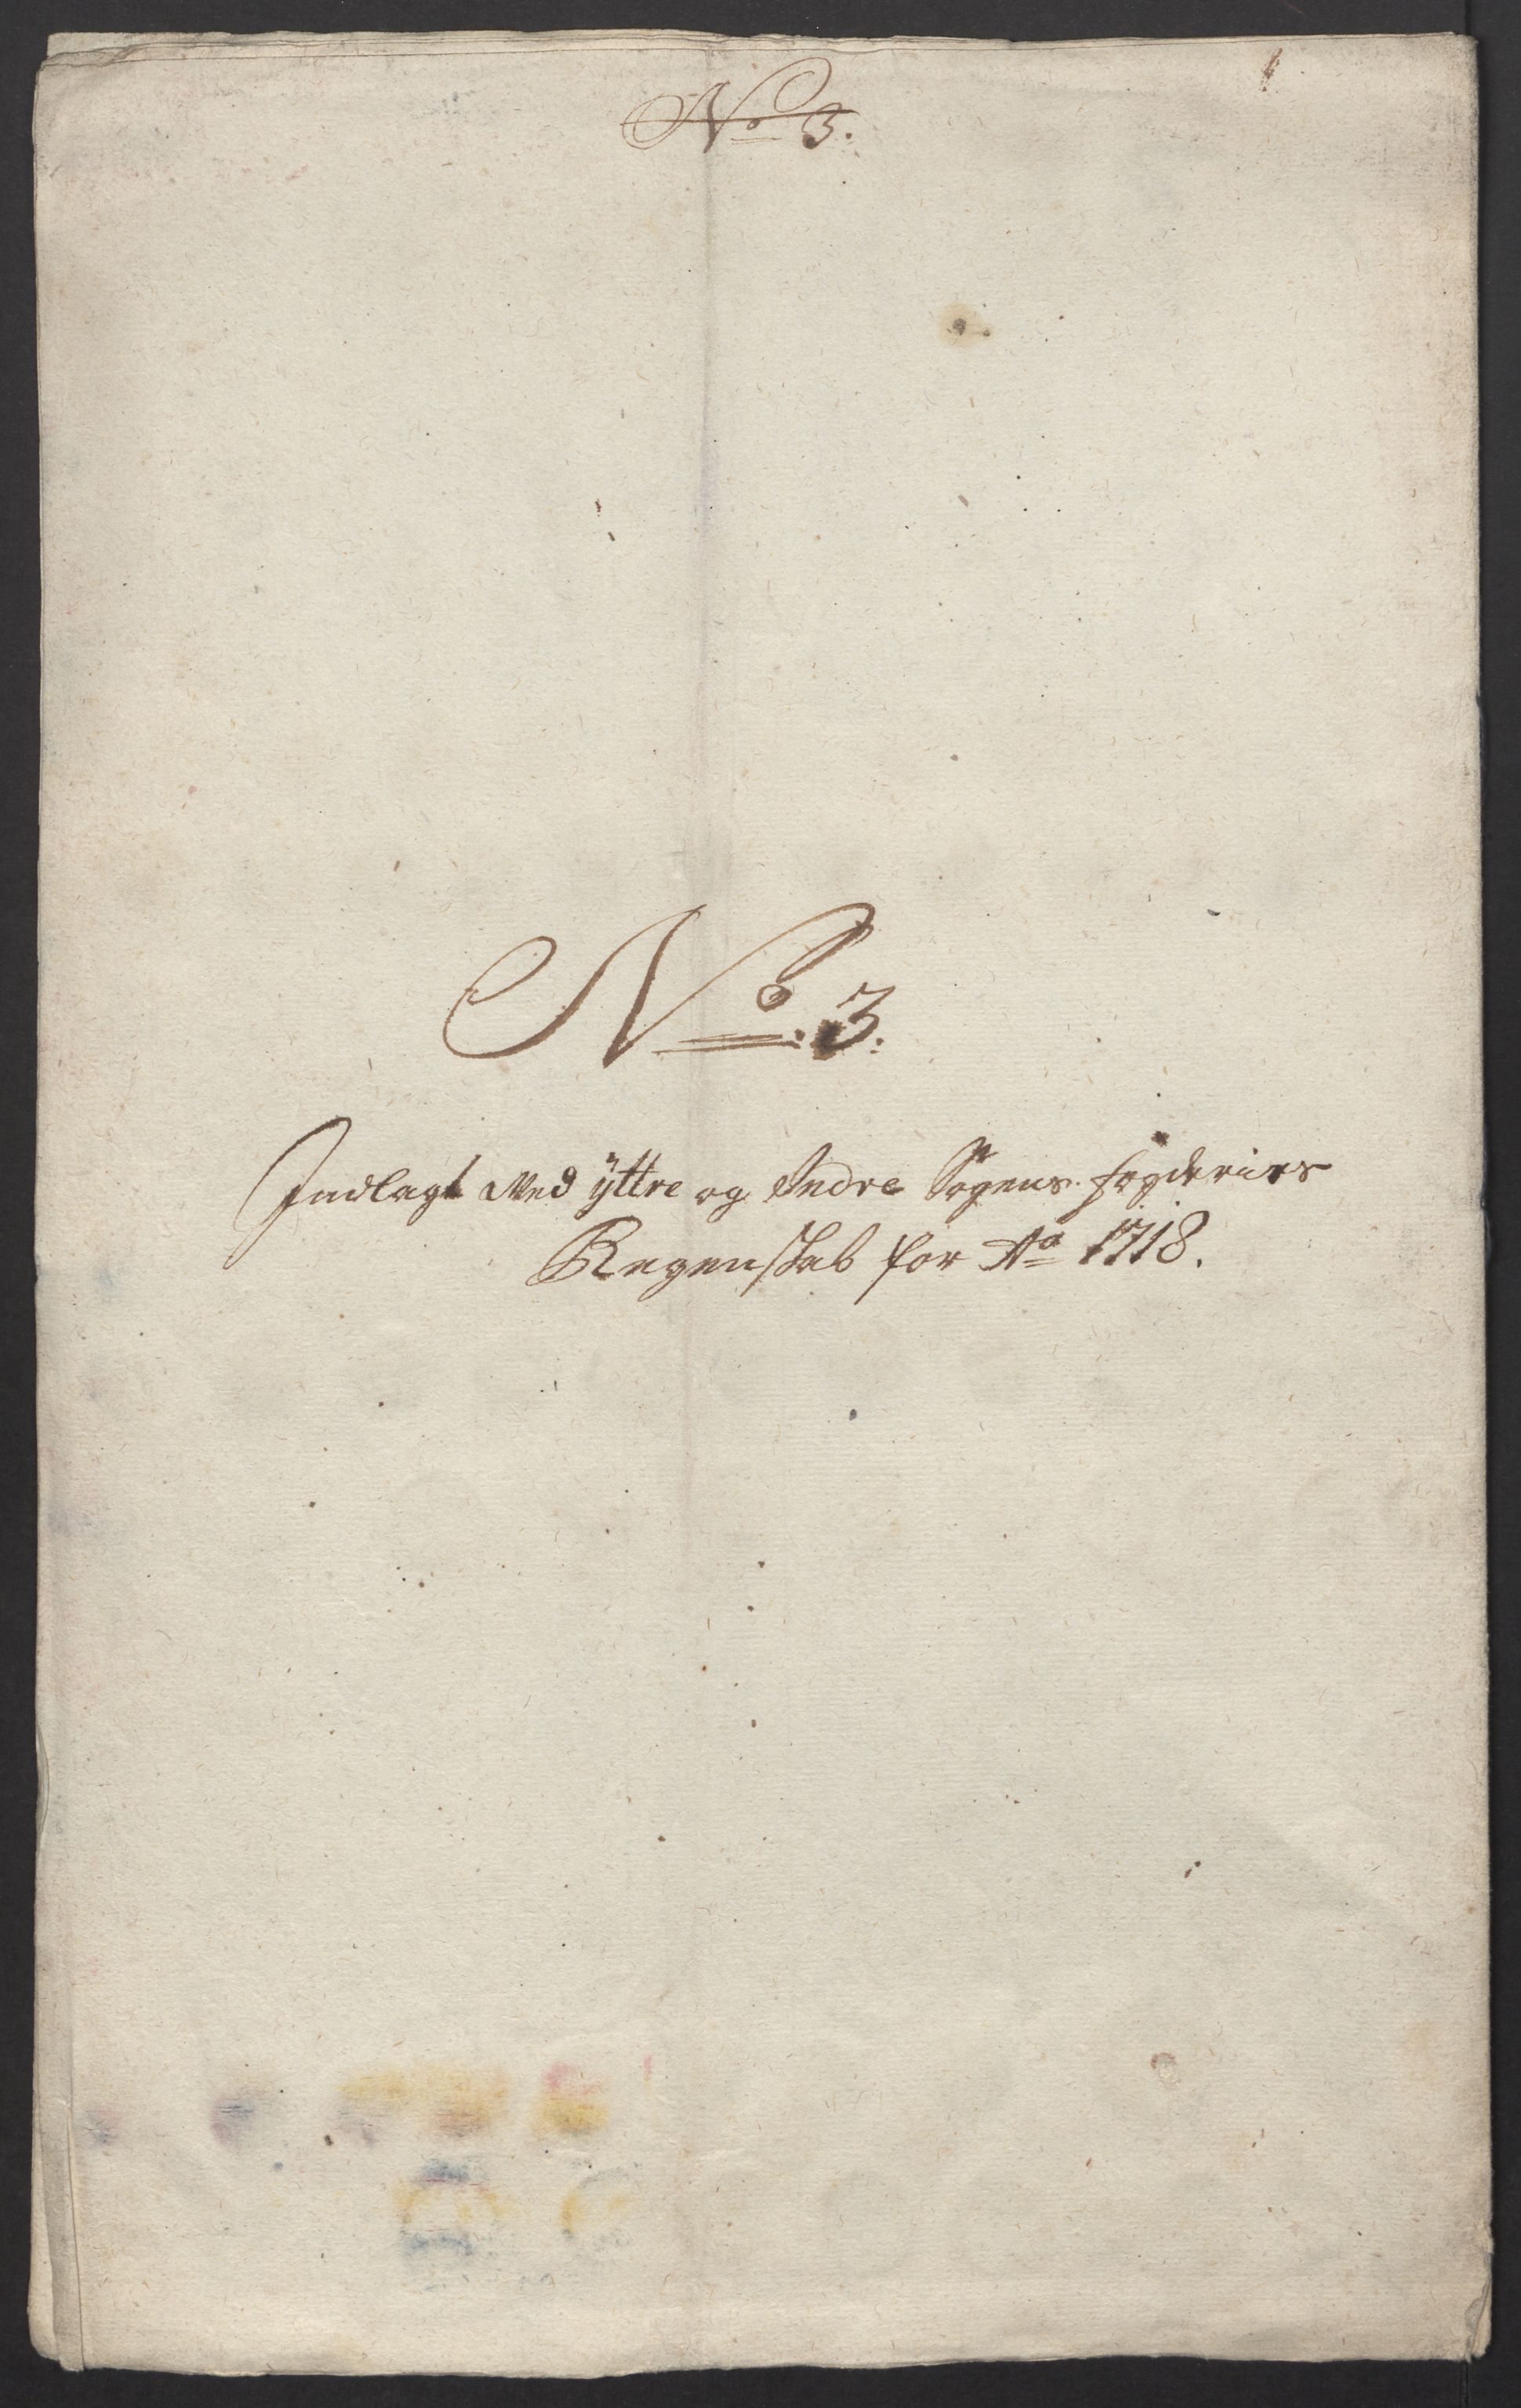 No 3.
No. 3.
Indlagt Med ÿttre og Indre Sogens fogderies
Regenskab for Ao 1718.